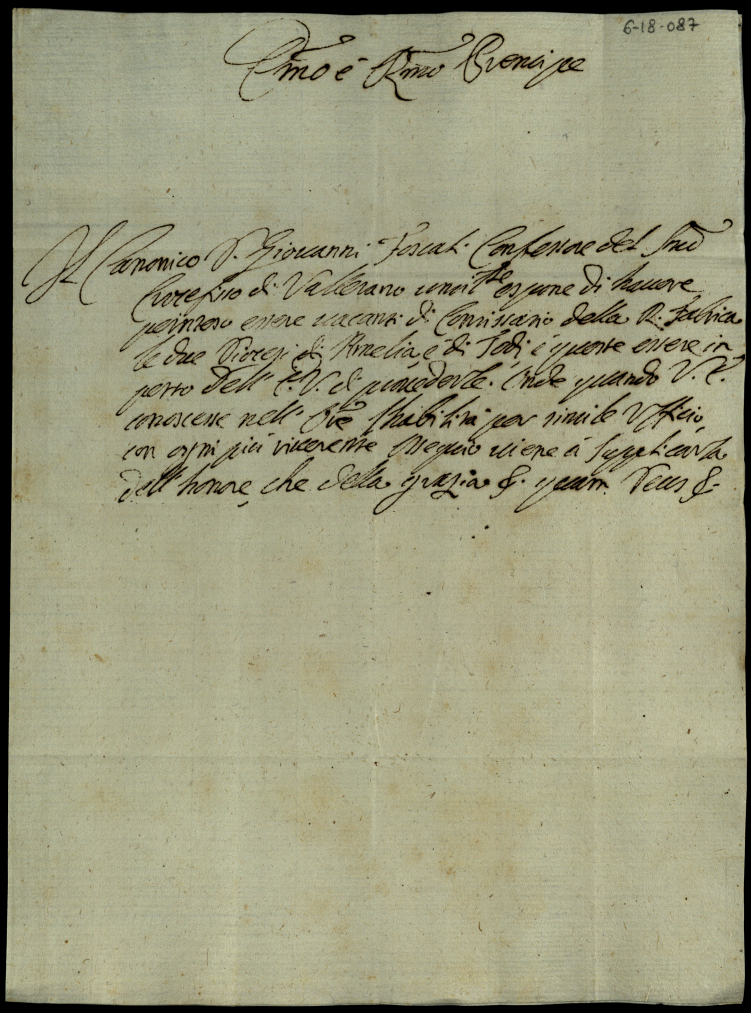 6-18-087
Em̃o e Rm̃o Prencipe
Il Canonico D. Giovanni Foscati Confessore del Smõ
Crocefisso di Vallerano umilte espone di havere
penetrato essere vacanti di Comissario della R. Fabrica
le due Diocesi di Amelia, è di Todi, è queste essere in
petto dell' E. V. di provederle. Onde quando V. E.
conoscesse nell' Ore l'habilità per simile Ufficio,
con ogni più riverente ossequio viene à supplicarla
dell' honore, che della grazia &. quam Deus &.